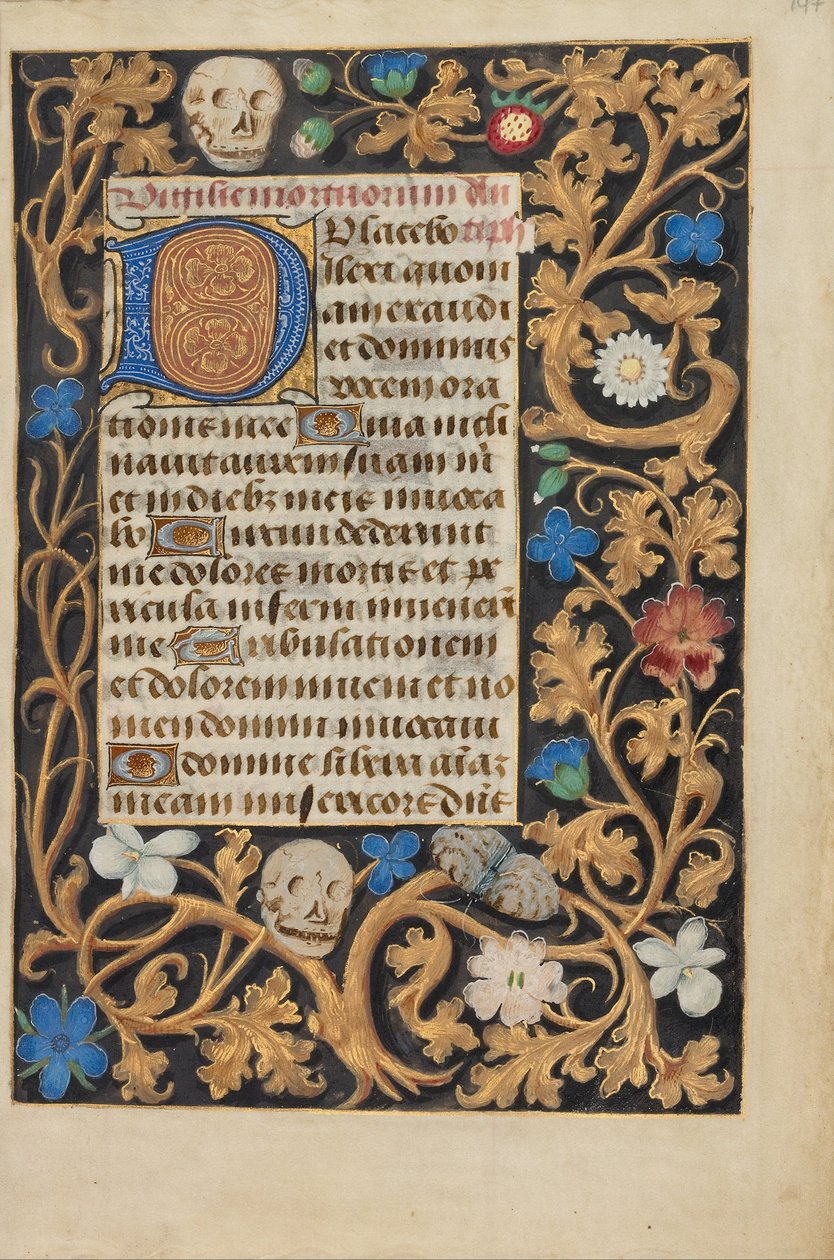 147
Vigilie mortuorum an̄
Placebo tiph
Dilexi quoni
am exaudi
et dominus
vocem ora
tionis mee Quia incli
navit aurem suam m̄
et in diebꝫ meis invoca
bo Circundederunt
me dolores mortis et pe
ricula inferni invenerūt
me Tribulationem
et dolorem inveni et no
men domini invocavi
O domine libera aīaꝫ
meam mi sericors dn̄s